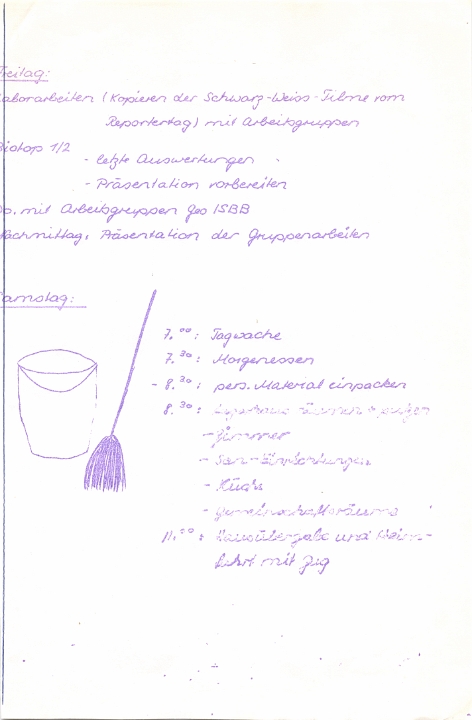 Freitag:
Laborarbeiten (Kopieren der Schwarz-Weiss-Filme vom
Reportertag) mit Arbeitsgruppen
Biotop 1/2
- letzte Auswertungen
- Präsentation vorbereiten
Do. mit Arbeitsgruppen Geo ISBB
Nachmittag: Präsentation der Gruppenarbeiten
Samstag:
7.00: Tagwache
7.30: Morgenessen
- 8.30: pers. Material einpacken
8.30: räumen + putzen
- Zimmer
- San-Einrichtungen
- Küche
- Gemeinschaftsräume
11.00: Hausübergabe und Heim-
fahrt mit Zug